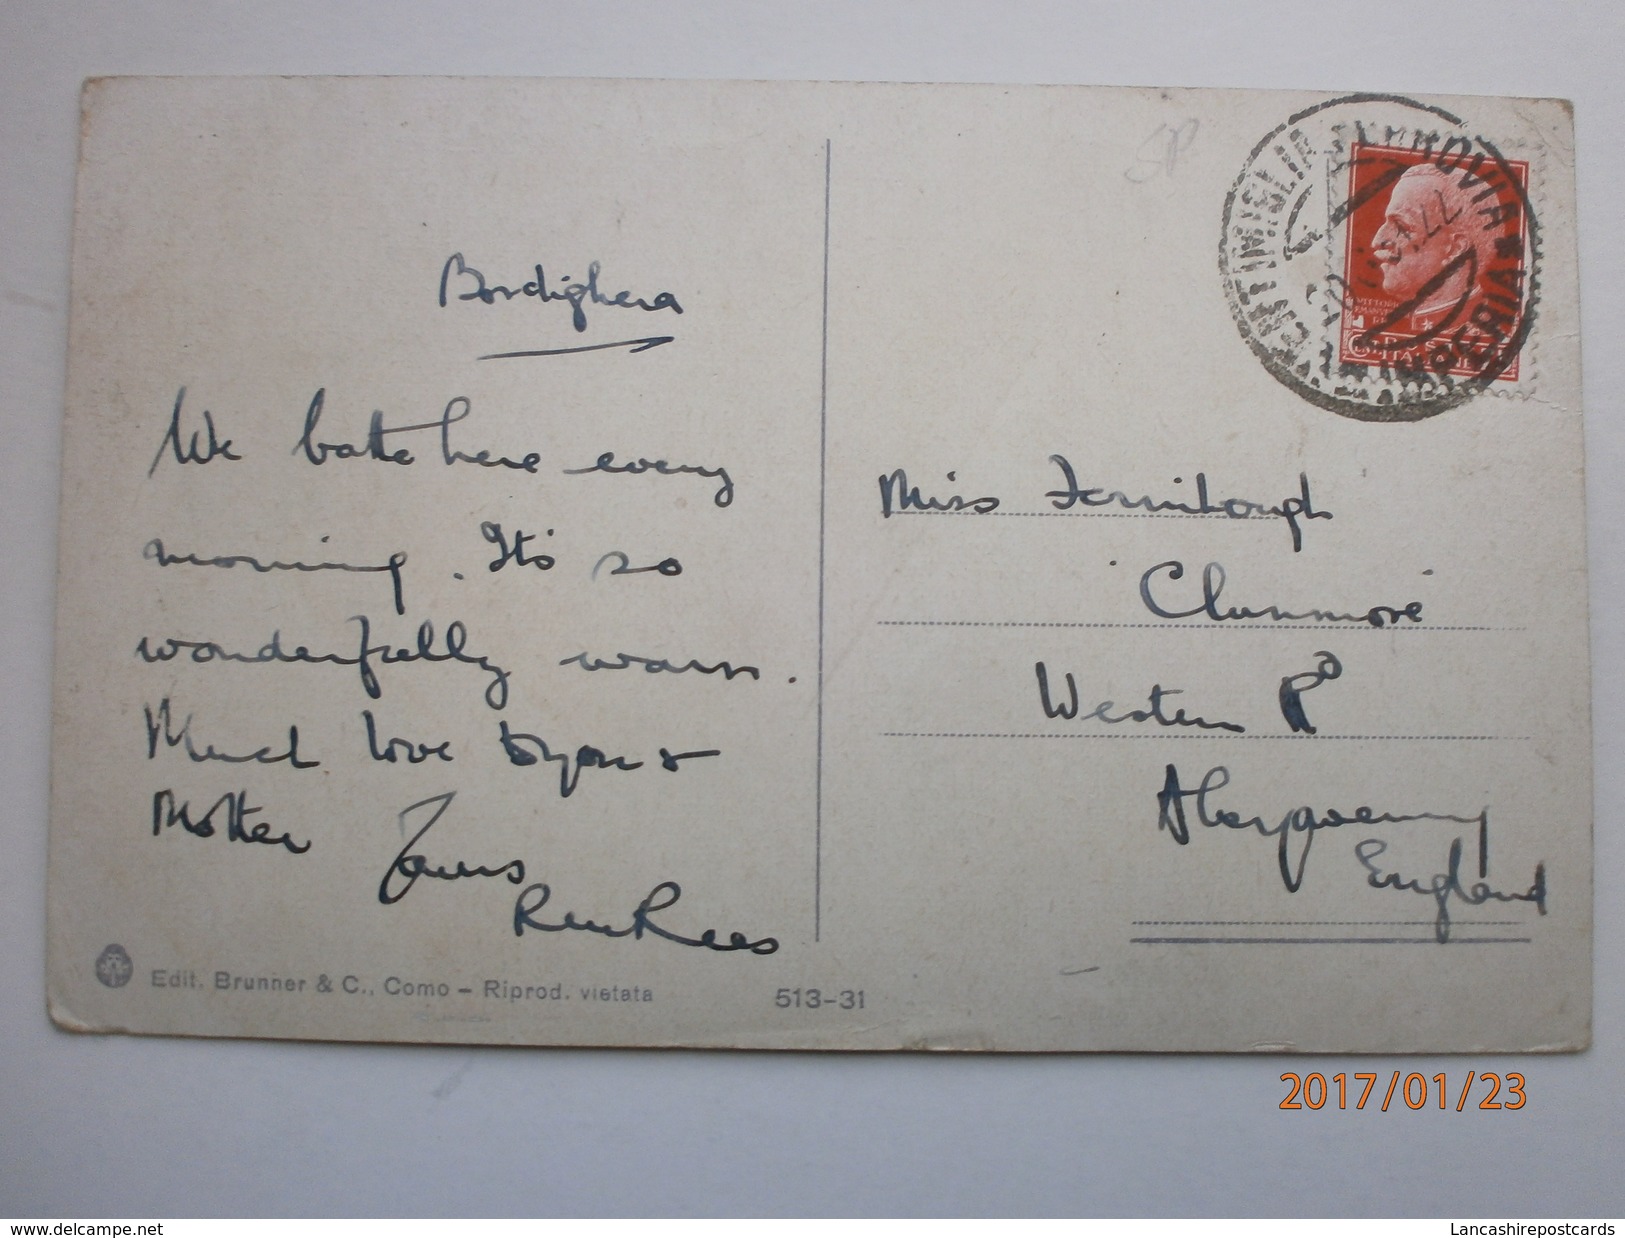 Bordighera
We bathe here every
morning. It's so
wonderfully warm.
Much love to you &
Mother Yours
Rees
Edit. Brunner & C., Como – Riprod. vietata
513-31
SP
VENTIMIGLIA FERROVIA
IMPERIA
VITTORIO
Miss Fernihough
Clanmore
Western Rd
Abergavenny
England
2017/01/23
www.delcampe.net
Lancashirepostcards